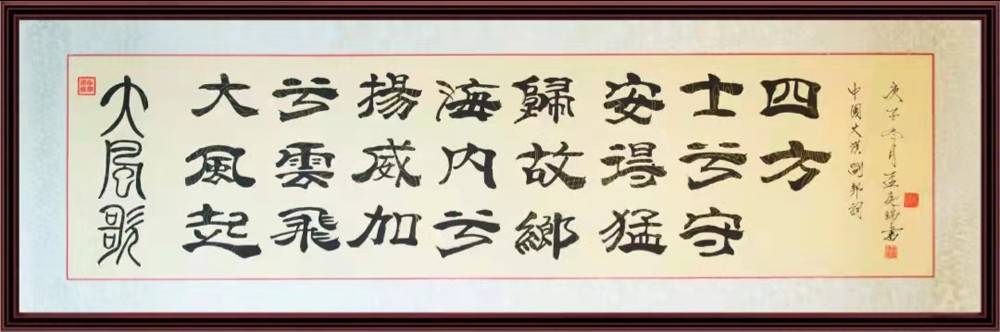 大風歌
大風起
兮雲飛
揚威加
海內兮
歸故鄉
安得猛
士兮守
四方
中國大漢劉邦詞
庚子冬月